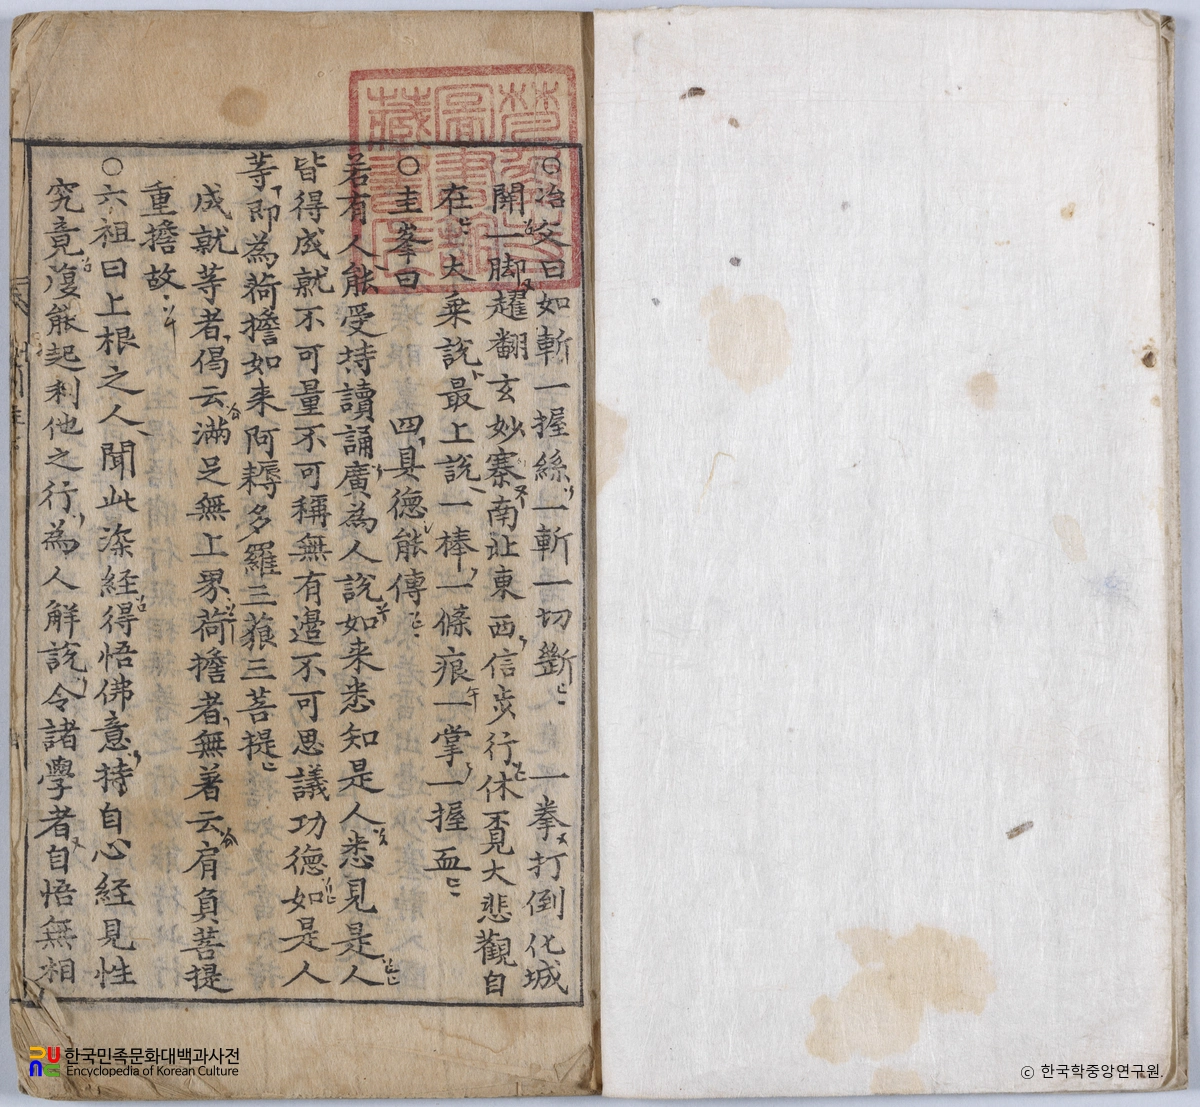 ○冶父曰如斬一握絲一斬一切斷 一拳打倒化城
開一脚趯翻玄妙寨南北東西信步行休覓大悲觀自
在大乘說最上說一棒一條痕一掌一握血
○圭峯曰 四具德能傳
若有人能受持讀誦廣為人說如来悉知是人悉見是人
皆得成就不可量不可稱無有邊不可思議功德如是人
等即為荷擔如来阿耨多羅三藐三菩提
成就等者偈云滿足無上界荷擔者無著云肩負菩提
重擔故
○六祖曰上根之人聞此深経得悟佛意持自心経見性
究竟復能起利他之行為人解說令諸學者自悟無相
한국민족문화대백과사전
Encyclopedia of Korean Culture
© 한국학중앙연구원.